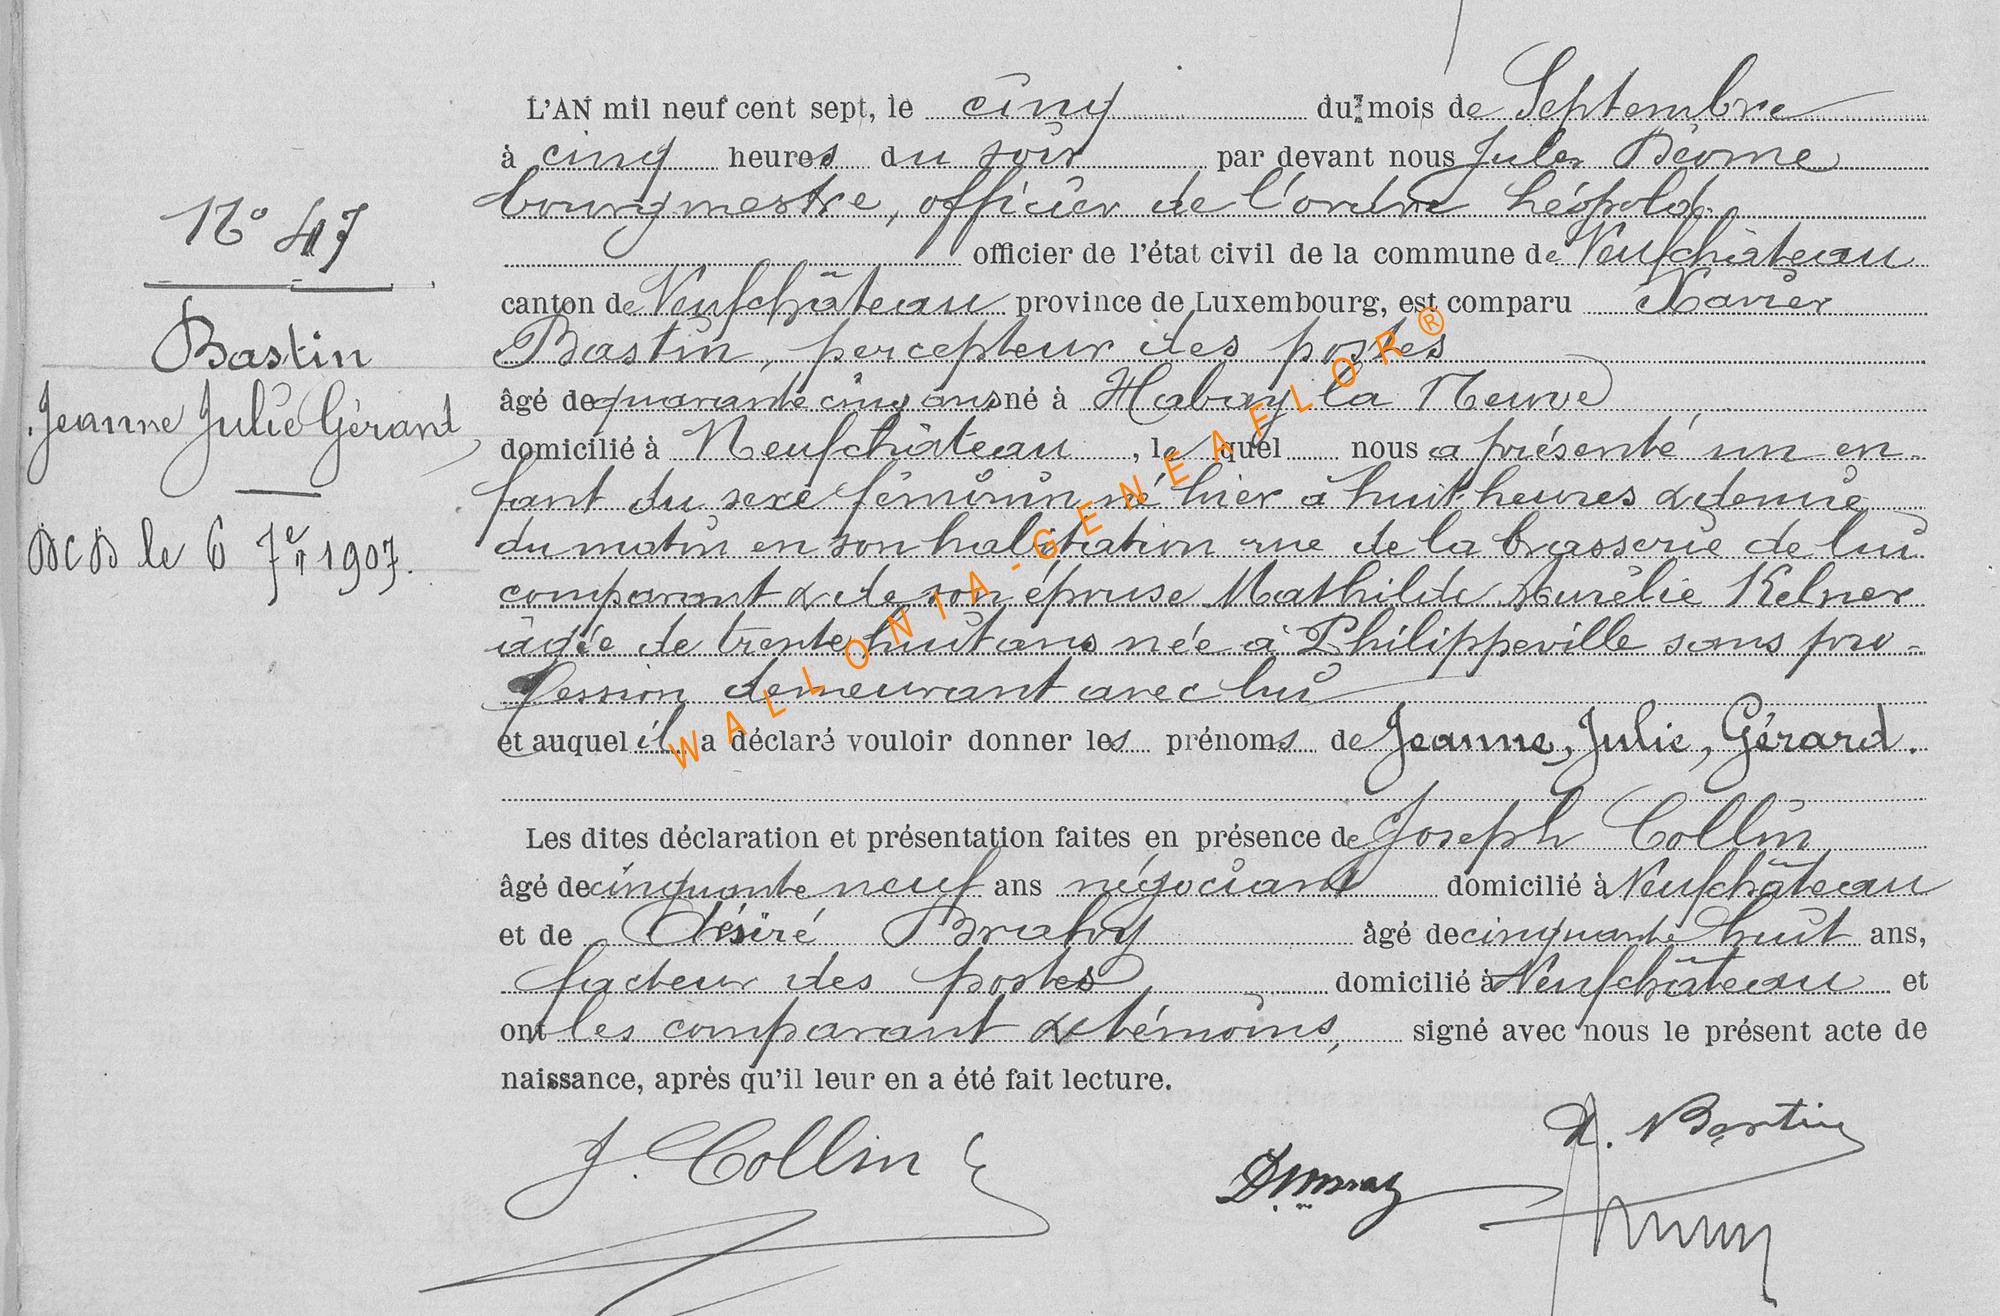 L'AN mil neuf cent sept, le cinq du mois de Septembre
à cinq heures du soir par devant nous Jules
bourgmestre, officier de l'ordre Léopold
officier de l'état civil de la commune de Neufchâteau
canton de Neufchâteau province de Luxembourg, est comparu Xavier
Bastin, percepteur des postes
âgé de quarante cinq ans né à Habay la Neuve
domicilié à Neufchâteau, lequel nous a présenté un en-
fant du sexe féminin né hier à huit heures & demie
du matin en son habitation rue de la brasserie de lui
comparant & de son épouse Mathilde Aurélie Kelner
âgée de trente huit ans née à Philippeville sans pro-
fession demeurant avec lui
et auquel il a déclaré vouloir donner les prénoms de Jeanne, Julie, Gérard.
Les dites déclaration et présentation faites en présence de Joseph Collin
âgé de cinquante neuf ans négociant domicilié à Neufchâteau
et de Désiré âgé de cinquante huit ans,
facteur des postes domicilié à Neufchâteau et
ont les comparant & témoins, signé avec nous le présent acte de
naissance, après qu'il leur en a été fait lecture.
J. Collin
X. Bastin
N° 47
Bastin
Jeanne Julie Gérard
DCD le 6 1907.
WALLONIA-GENEAFLOR®